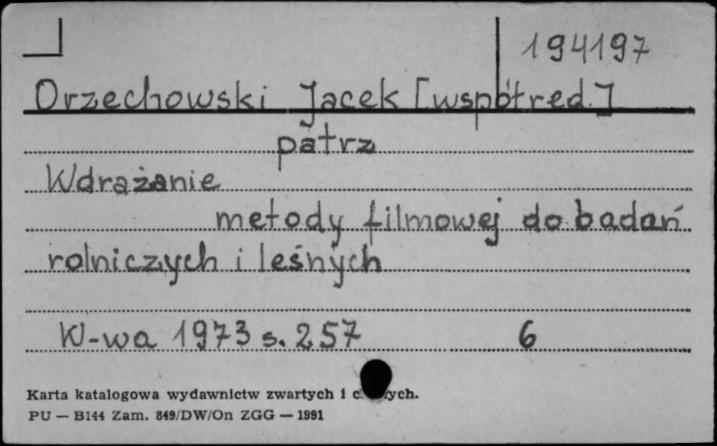 194197
Orzechowski Jacek [współred.]
patrz
Wdrażanie
metody filmowej do badań
rolniczych i leśnych
W-wa 1973 s. 257 6
Karta katalogowa wydawnictw zwartych i
PU — B144 Zam. 849/DW/On ZGG — 1991